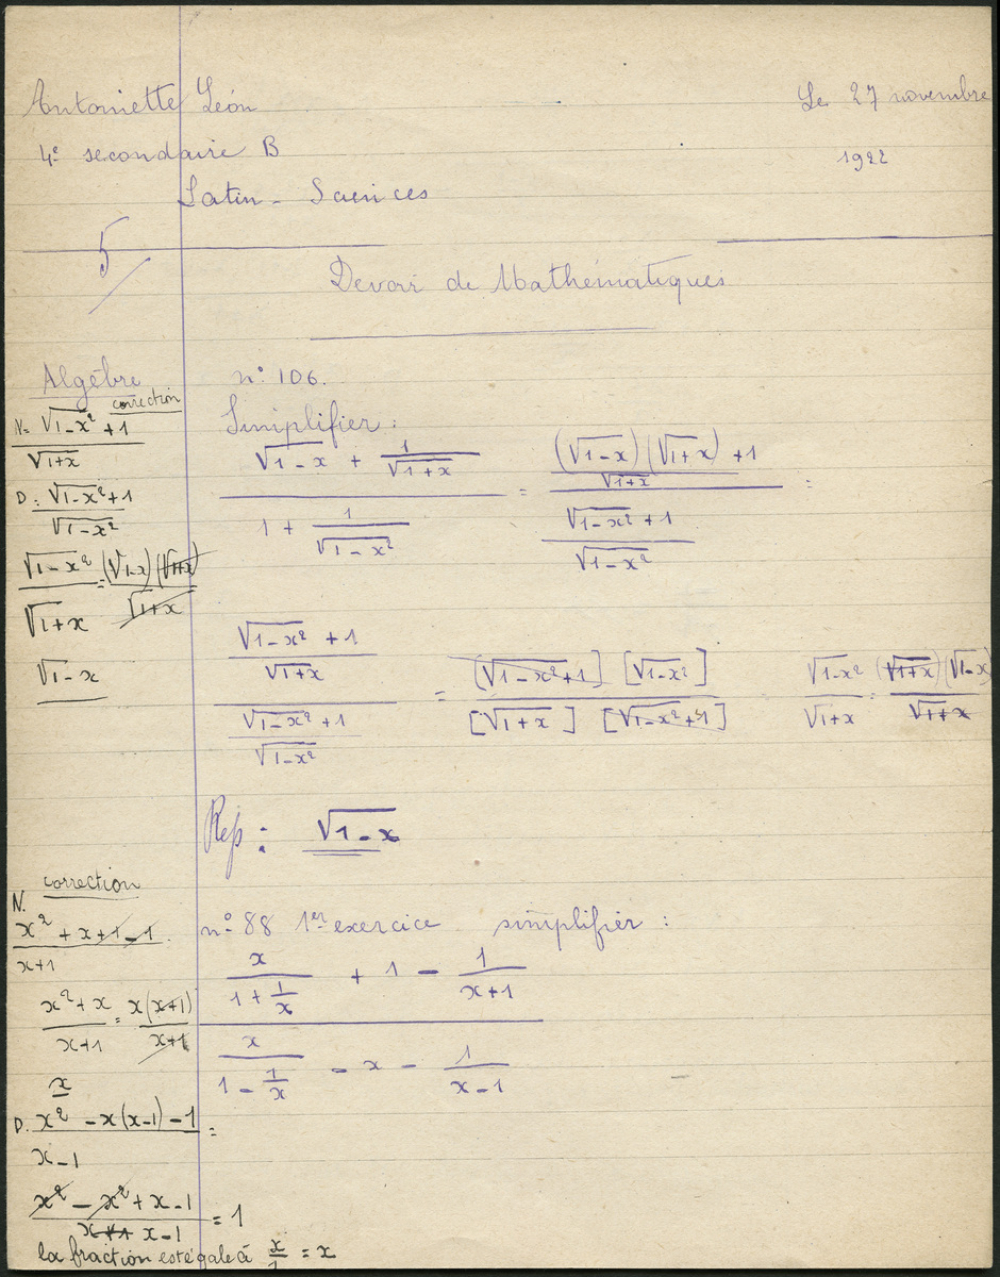 Antoinette Léon
Le 27 novembre
4e secondaire B
1922
Latin - Sciences
5/
Devoir de Mathématiques
Algèbre
correction
N = (√(1-x²) + 1) / √(1+x)
D = (√(1-x²) + 1) / √(1-x²)
√(1-x²) / √(1+x) = (√(1-x)) (√(1+x)) / √(1+x)
√(1-x)
n° 106.
Simplifier :
(√(1-x) + 1/√(1+x)) / (1 + 1/√(1-x²)) = (((√(1-x)) (√(1+x)) + 1) / √(1+x)) / ((√(1-x²) + 1) / √(1-x²)) =
((√(1-x²) + 1) / √(1+x)) / ((√(1-x²) + 1) / √(1-x²)) = [√(1-x²)+1] [√(1-x²)] / [√(1+x)] [√(1-x²)+1] = √(1-x²) / √(1+x) = (√(1+x)) (√(1-x)) / √(1+x)
Rép : √(1-x)
correction
N. (x² + x + 1 - 1) / (x+1)
(x² + x) / (x+1) = x(x+1) / (x+1)
x
D. (x² - x(x-1) - 1) / (x-1) =
(x² - x² + x - 1) / (x-1) = 1
la fraction est égale à x/1 = x
n° 88 1er exercice simplifier :
(x/(1 + 1/x) + 1 - 1/(x+1)) / (x/(1 - 1/x) - x - 1/(x-1))